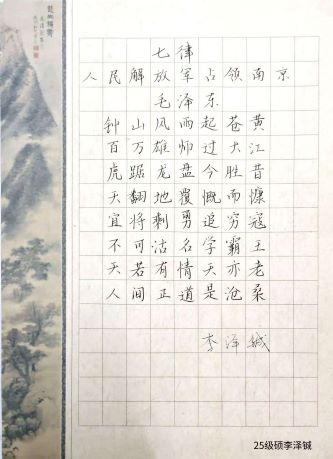 七律
人民解放军占领南京
毛泽东
钟山风雨起苍黄
百万雄师过大江
虎踞龙盘今胜昔
天翻地覆慨而慷
宜将剩勇追穷寇
不可沽名学霸王
天若有情天亦老
人间正道是沧桑
李泽铖
25级硕李泽铖